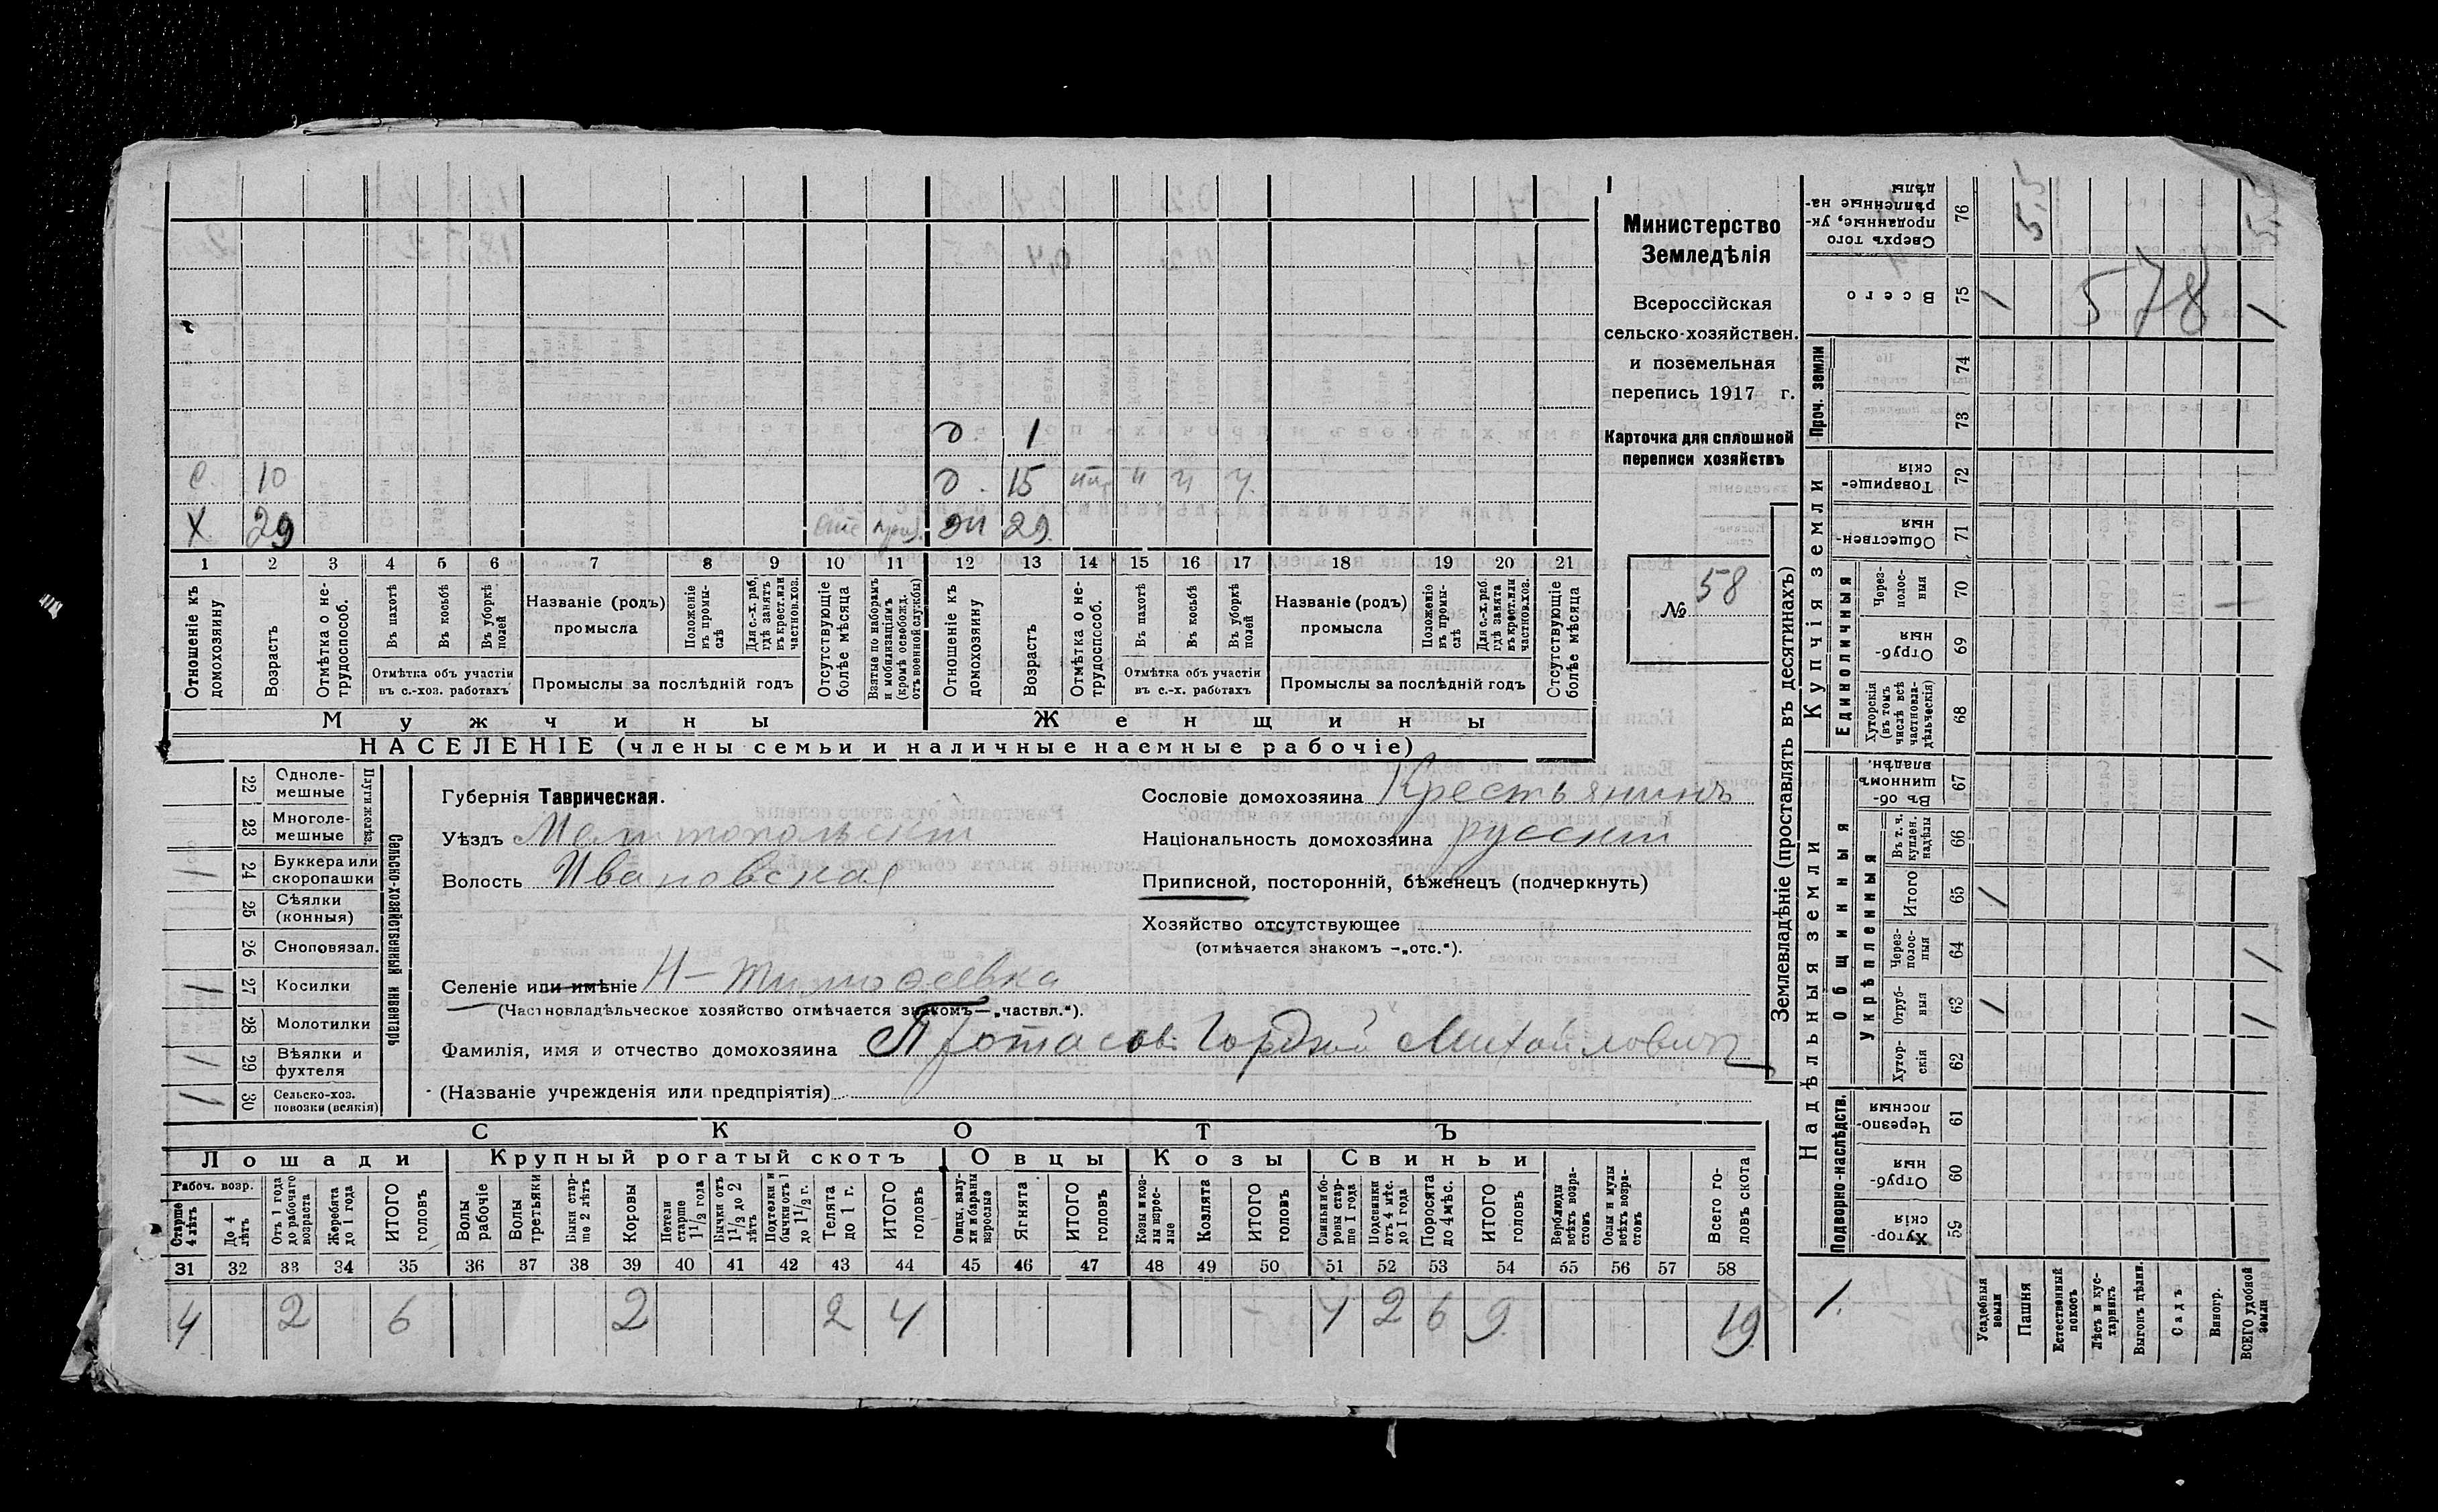 Министерство
Земледѣлія
Всероссійская
сельско-хозяйствен.
и поземельная
перепись 1917 г.
Карточка для сплошной
переписи хозяйствъ
№ 58
д. 1
с. 10 д. 15 " ч ч
х 29 29
1 2 3 4 5 6 7 8 9 10 11 12 13 14 15 16 17 18 19 20 21
Отношеніе къ домохозяину
Возрастъ
Отмѣтка о нетрудоспособ.
Въ пахотѣ
Въ косьбѣ
Въ уборкѣ полей
Отмѣтка объ участіи въ с.-хоз. работахъ
Названіе (родъ) промысла
Положеніе въ промыслѣ
Для с.-х. раб. гдѣ занятъ въ крест. или частнов. хоз.
Промыслы за послѣдній годъ
Отсутствующіе болѣе мѣсяца
Взятые по наборамъ и мобилизаціямъ (кромѣ освобожд. отъ военной службы)
Отношеніе къ домохозяину
Возрастъ
Отмѣтка о нетрудоспособ.
Въ пахотѣ
Въ косьбѣ
Въ уборкѣ полей
Отмѣтка объ участіи въ с.-х. работахъ
Названіе (родъ) промысла
Положеніе въ промыслѣ
Для с.-х. раб. гдѣ занята въ крест. или частнов. хоз.
Промыслы за послѣдній годъ
Отсутствующіе болѣе мѣсяца
Мужчины Женщины
НАСЕЛЕНІЕ (члены семьи и наличные наемные рабочіе)
Сельско-хозяйственный инвентарь
22 Однолемешные
23 Многолемешные
1 24 Буккера или скоропашки
25 Сѣялки (конныя)
26 Сноповязал.
1 27 Косилки
28 Молотилки
1 29 Вѣялки и фухтеля
1 30 Сельско-хоз. повозки (всякія)
Губернія Таврическая.
Уѣздъ Мелитопольскій
Волость Ивановская
Селеніе или имѣніе Н-Тимофеевка
(Частновладѣльческое хозяйство отмѣчается знакомъ—„частвл.“).
Фамилія, имя и отчество домохозяина Протасовъ Гордей Михайловичъ
(Названіе учрежденія или предпріятія)
Сословіе домохозяина Крестьянинъ
Національность домохозяина русскій
Приписной, посторонній, бѣженецъ (подчеркнуть)
Хозяйство отсутствующее
(отмѣчается знакомъ —„отс.“).
СКОТЪ
Лошади Крупный рогатый скотъ Овцы Козы Свиньи
Рабоч. возр.
Старше 4 лѣтъ
До 4 лѣтъ
Отъ 1 года до рабочаго возраста
Жеребята до 1 года
ИТОГО головъ
Волы рабочіе
Волы третьяки
Быки старше 2 лѣтъ
Коровы
Нетели старше 1 1/2 года
Бычки отъ 1 1/2 до 2 лѣтъ
Подтелки и бычки отъ 1 до 1 1/2 г.
Телята до 1 г.
ИТОГО головъ
Овцы, валухи и бараны взрослые
Ягнята
ИТОГО головъ
Козы и козлы взрослые
Козлята
ИТОГО головъ
Свиньи и боровы старше 1 года
Подсвинки отъ 4 мѣс. до 1 года
Поросята до 4 мѣс.
ИТОГО головъ
Верблюды всѣхъ возрастовъ
Ослы и мулы всѣхъ возрастовъ
Всего головъ скота
31 32 33 34 35 36 37 38 39 40 41 42 43 44 45 46 47 48 49 50 51 52 53 54 55 56 57 58
4 2 6 2 2 4 1 2 6 9 19
Землевладѣніе (проставлять въ десятинахъ)
Надѣльныя земли
Купчія земли
Проч. земли
Подворно-наслѣдств.
Общинныя
Укрѣпленныя
Единоличныя
Сверхъ того проданные, укрѣпленные надѣлы 76 5,5 5,5
Всего 75 1 578 1
74
73
Товарищескія 72
Общественныя 71
Черезполосныя 70
Отрубныя 69
Хуторскія (въ томъ числѣ всѣ частновладѣльческія) 68
Въ общинномъ владѣн. 67
Въ т. ч. куплен. надѣлы 66
Итого 65 1
Черезполосныя 64 1
Отрубныя 63 1 1
Хуторскія 62
Черезполосныя 61
Отрубныя 60
Хуторскія 59
1.
Усадебныя земли
Пашня
Естественный покосъ
Лѣсъ и кустарникъ
Выгонъ дѣлин.
Садъ
Виногр.
ВСЕГО удобной земли